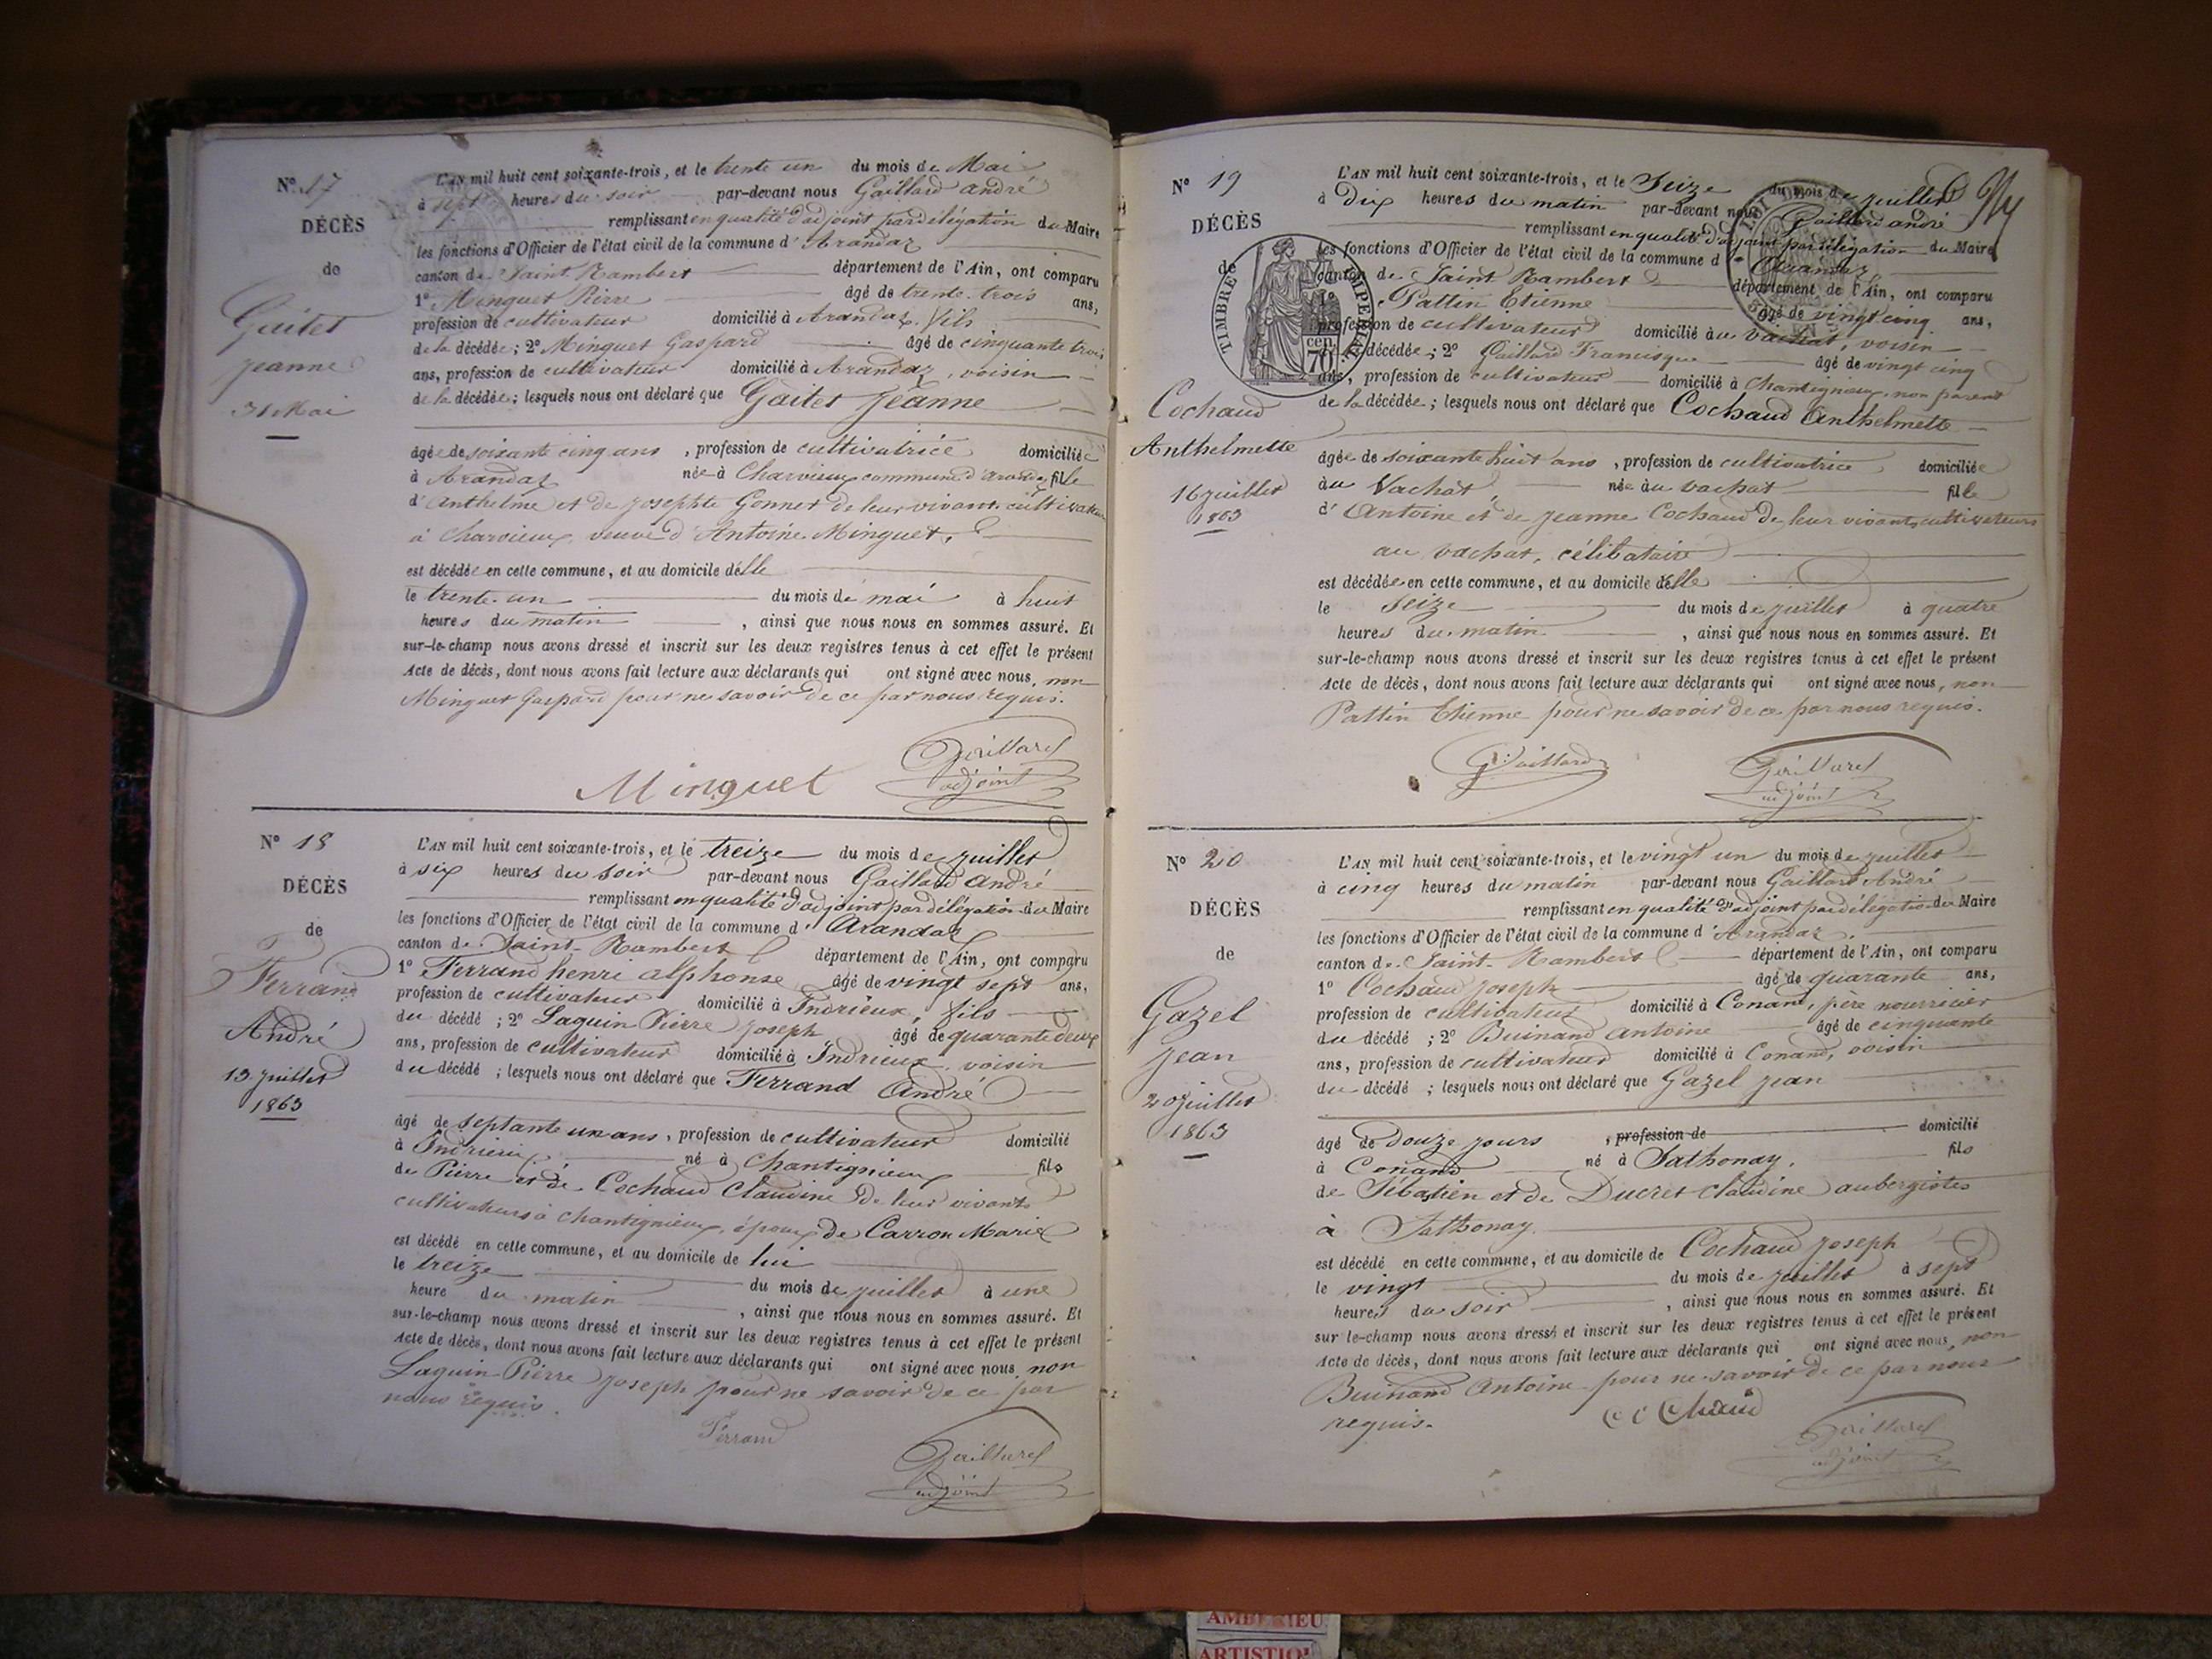 Nº 17
DÉCÈS
de
Guitet
Jeanne
31 Mai
L'AN mil huit cent soixante-trois, et le trente un du mois de Mai
à sept heures du soir par-devant nous Gaillard André
remplissant en qualité d'adjoint par délégation du Maire
les fonctions d'Officier de l'état civil de la commune d'Arandaz
canton de Saint-Rambert département de l'Ain, ont comparu
1º Minguet Pierre âgé de trente-trois ans,
profession de cultivateur domicilié à Arandaz, fils
de la décédée; 2º Minguet Gaspard âgé de cinquante trois
ans, profession de cultivateur domicilié à Arandaz, voisin
de la décédée; lesquels nous ont déclaré que Gaitet Jeanne
âgée de soixante cinq ans, profession de cultivatrice domiciliée
à Arandaz née à Charvieux commune d'Arandaz fille
d'Anthelme et de Josephte Gonnet de leur vivant cultivateurs
à Charvieux, veuve d'Antoine Minguet,
est décédée en cette commune, et au domicile d'elle
le trente-un du mois de mai à huit
heures du matin, ainsi que nous nous en sommes assuré. Et
sur-le-champ nous avons dressé et inscrit sur les deux registres tenus à cet effet le présent
Acte de décès, dont nous avons fait lecture aux déclarants qui ont signé avec nous, non
Minguet Gaspard pour ne savoir de ce par nous requis.
Minguet
Gaillard
adjoint
Nº 18
DÉCÈS
de
Ferrand
André
13 juillet
1863
L'AN mil huit cent soixante-trois, et le treize du mois de juillet
à six heures du soir par-devant nous Gaillard André
remplissant en qualité d'adjoint par délégation du Maire
les fonctions d'Officier de l'état civil de la commune d'Arandaz
canton de Saint-Rambert département de l'Ain, ont comparu
1º Ferrand henri alphonse âgé de vingt sept ans,
profession de cultivateur domicilié à Indrieux, fils
du décédé; 2º Laguin Pierre Joseph âgé de quarante deux
ans, profession de cultivateur domicilié à Indrieux, voisin
du décédé; lesquels nous ont déclaré que Ferrand André
âgé de septante un ans, profession de cultivateur domicilié
à Indrieux né à Chantignieux fils
de Pierre et de Cochaud Claudine de leur vivant
cultivateurs à Chantignieux, époux de Carron Marie
est décédé en cette commune, et au domicile de lui
le treize du mois de juillet à une
heure du matin, ainsi que nous nous en sommes assuré. Et
sur-le-champ nous avons dressé et inscrit sur les deux registres tenus à cet effet le présent
Acte de décès, dont nous avons fait lecture aux déclarants qui ont signé avec nous, non
Laguin Pierre Joseph pour ne savoir de ce par
nous requis.
Ferrand
Gaillard
adjoint
Nº 19
DÉCÈS
de
TIMBRE IMPERIAL
70 cen
Cochaud
Anthelmette
16 juillet
1863
L'AN mil huit cent soixante-trois, et le Seize du mois de juillet
à Dix heures du matin par-devant nous Gaillard André
remplissant en qualité d'adjoint par délégation du Maire
les fonctions d'Officier de l'état civil de la commune d'Arandaz
canton de Saint Rambert département de l'Ain, ont comparu
1º Pattin Etienne âgé de vingt cinq ans,
profession de cultivateur domicilié au Vachat, voisin
de la décédée; 2º Gaillard Francisque âgé de vingt cinq
ans, profession de cultivateur domicilié à Chantignieux, non parent
de la décédée; lesquels nous ont déclaré que Cochaud Anthelmette
âgée de soixante huit ans, profession de cultivatrice domiciliée
au Vachat, née au vachat fille
d'Antoine et de Jeanne Cochaud de leur vivant cultivateurs
au vachat, célibataire
est décédée en cette commune, et au domicile d'elle
le Seize du mois de juillet à quatre
heures du matin, ainsi que nous nous en sommes assuré. Et
sur-le-champ nous avons dressé et inscrit sur les deux registres tenus à cet effet le présent
Acte de décès, dont nous avons fait lecture aux déclarants qui ont signé avec nous, non
Pattin Etienne pour ne savoir de ce par nous requis.
Gaillard
Gaillard
adjoint
Nº 20
DÉCÈS
de
Gazel
Jean
20 juillet
1863
L'AN mil huit cent soixante-trois, et le vingt un du mois de juillet
à cinq heures du matin par-devant nous Gaillard André
remplissant en qualité d'adjoint par délégation du Maire
les fonctions d'Officier de l'état civil de la commune d'Arandaz
canton de Saint-Rambert département de l'Ain, ont comparu
1º Cochaud Joseph âgé de quarante ans,
profession de cultivateur domicilié à Conand, père nourricier
du décédé; 2º Buinand Antoine âgé de cinquante
ans, profession de cultivateur domicilié à Conand, voisin
du décédé; lesquels nous ont déclaré que Gazel Jean
âgé de Douze jours, profession de domicilié
à Conand né à Sathonay, fils
de Sébastien et de Ducret Claudine aubergistes
à Sathonay
est décédé en cette commune, et au domicile de Cochaud Joseph
le vingt du mois de juillet à sept
heures du soir, ainsi que nous nous en sommes assuré. Et
sur-le-champ nous avons dressé et inscrit sur les deux registres tenus à cet effet le présent
Acte de décès, dont nous avons fait lecture aux déclarants qui ont signé avec nous, non
Buinand Antoine pour ne savoir de ce par nous
requis.
Cochaud
Gaillard
adjoint
AMBERIEU
ARTISTIQ